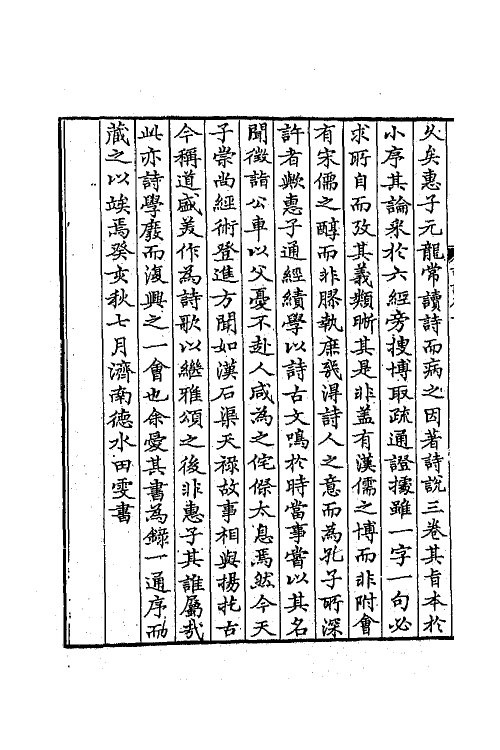 久矣惠子元龍常讀詩而病之因著詩說三卷其旨本於
小序其論采於六經旁搜博取疏通證據雖一字一句必
求所自而攷其義類晰其是非蓋有漢儒之博而非附會
有宋儒之醇而非膠執庶幾淂詩人之意而為孔子所深
許者歟惠子通經績學以詩古文鳴於時當事嘗以其名
聞徵詣公車以父憂不赴人咸為之侘傺太息焉然今天
子崇尚經術登進方聞如漢石渠天禄故事相與揚扢古
今稱道盛美作為詩歌以繼雅頌之後非惠子其誰屬哉
此亦詩學廢而復興之一會也余愛其書為錄一通序而
藏之以竢焉癸亥秋七月濟南德水田雯書